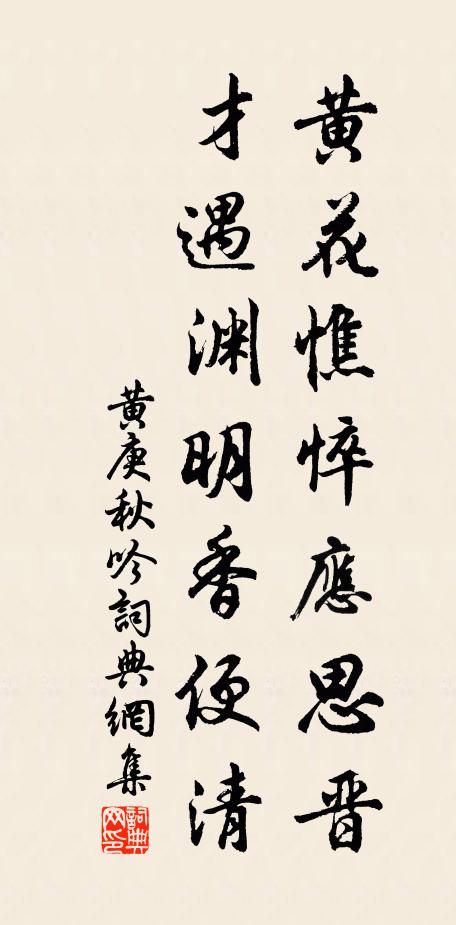 黄花憔悴應思晋
才遇渊明香便清
黄庚秋吟詞典網集
詞典网印